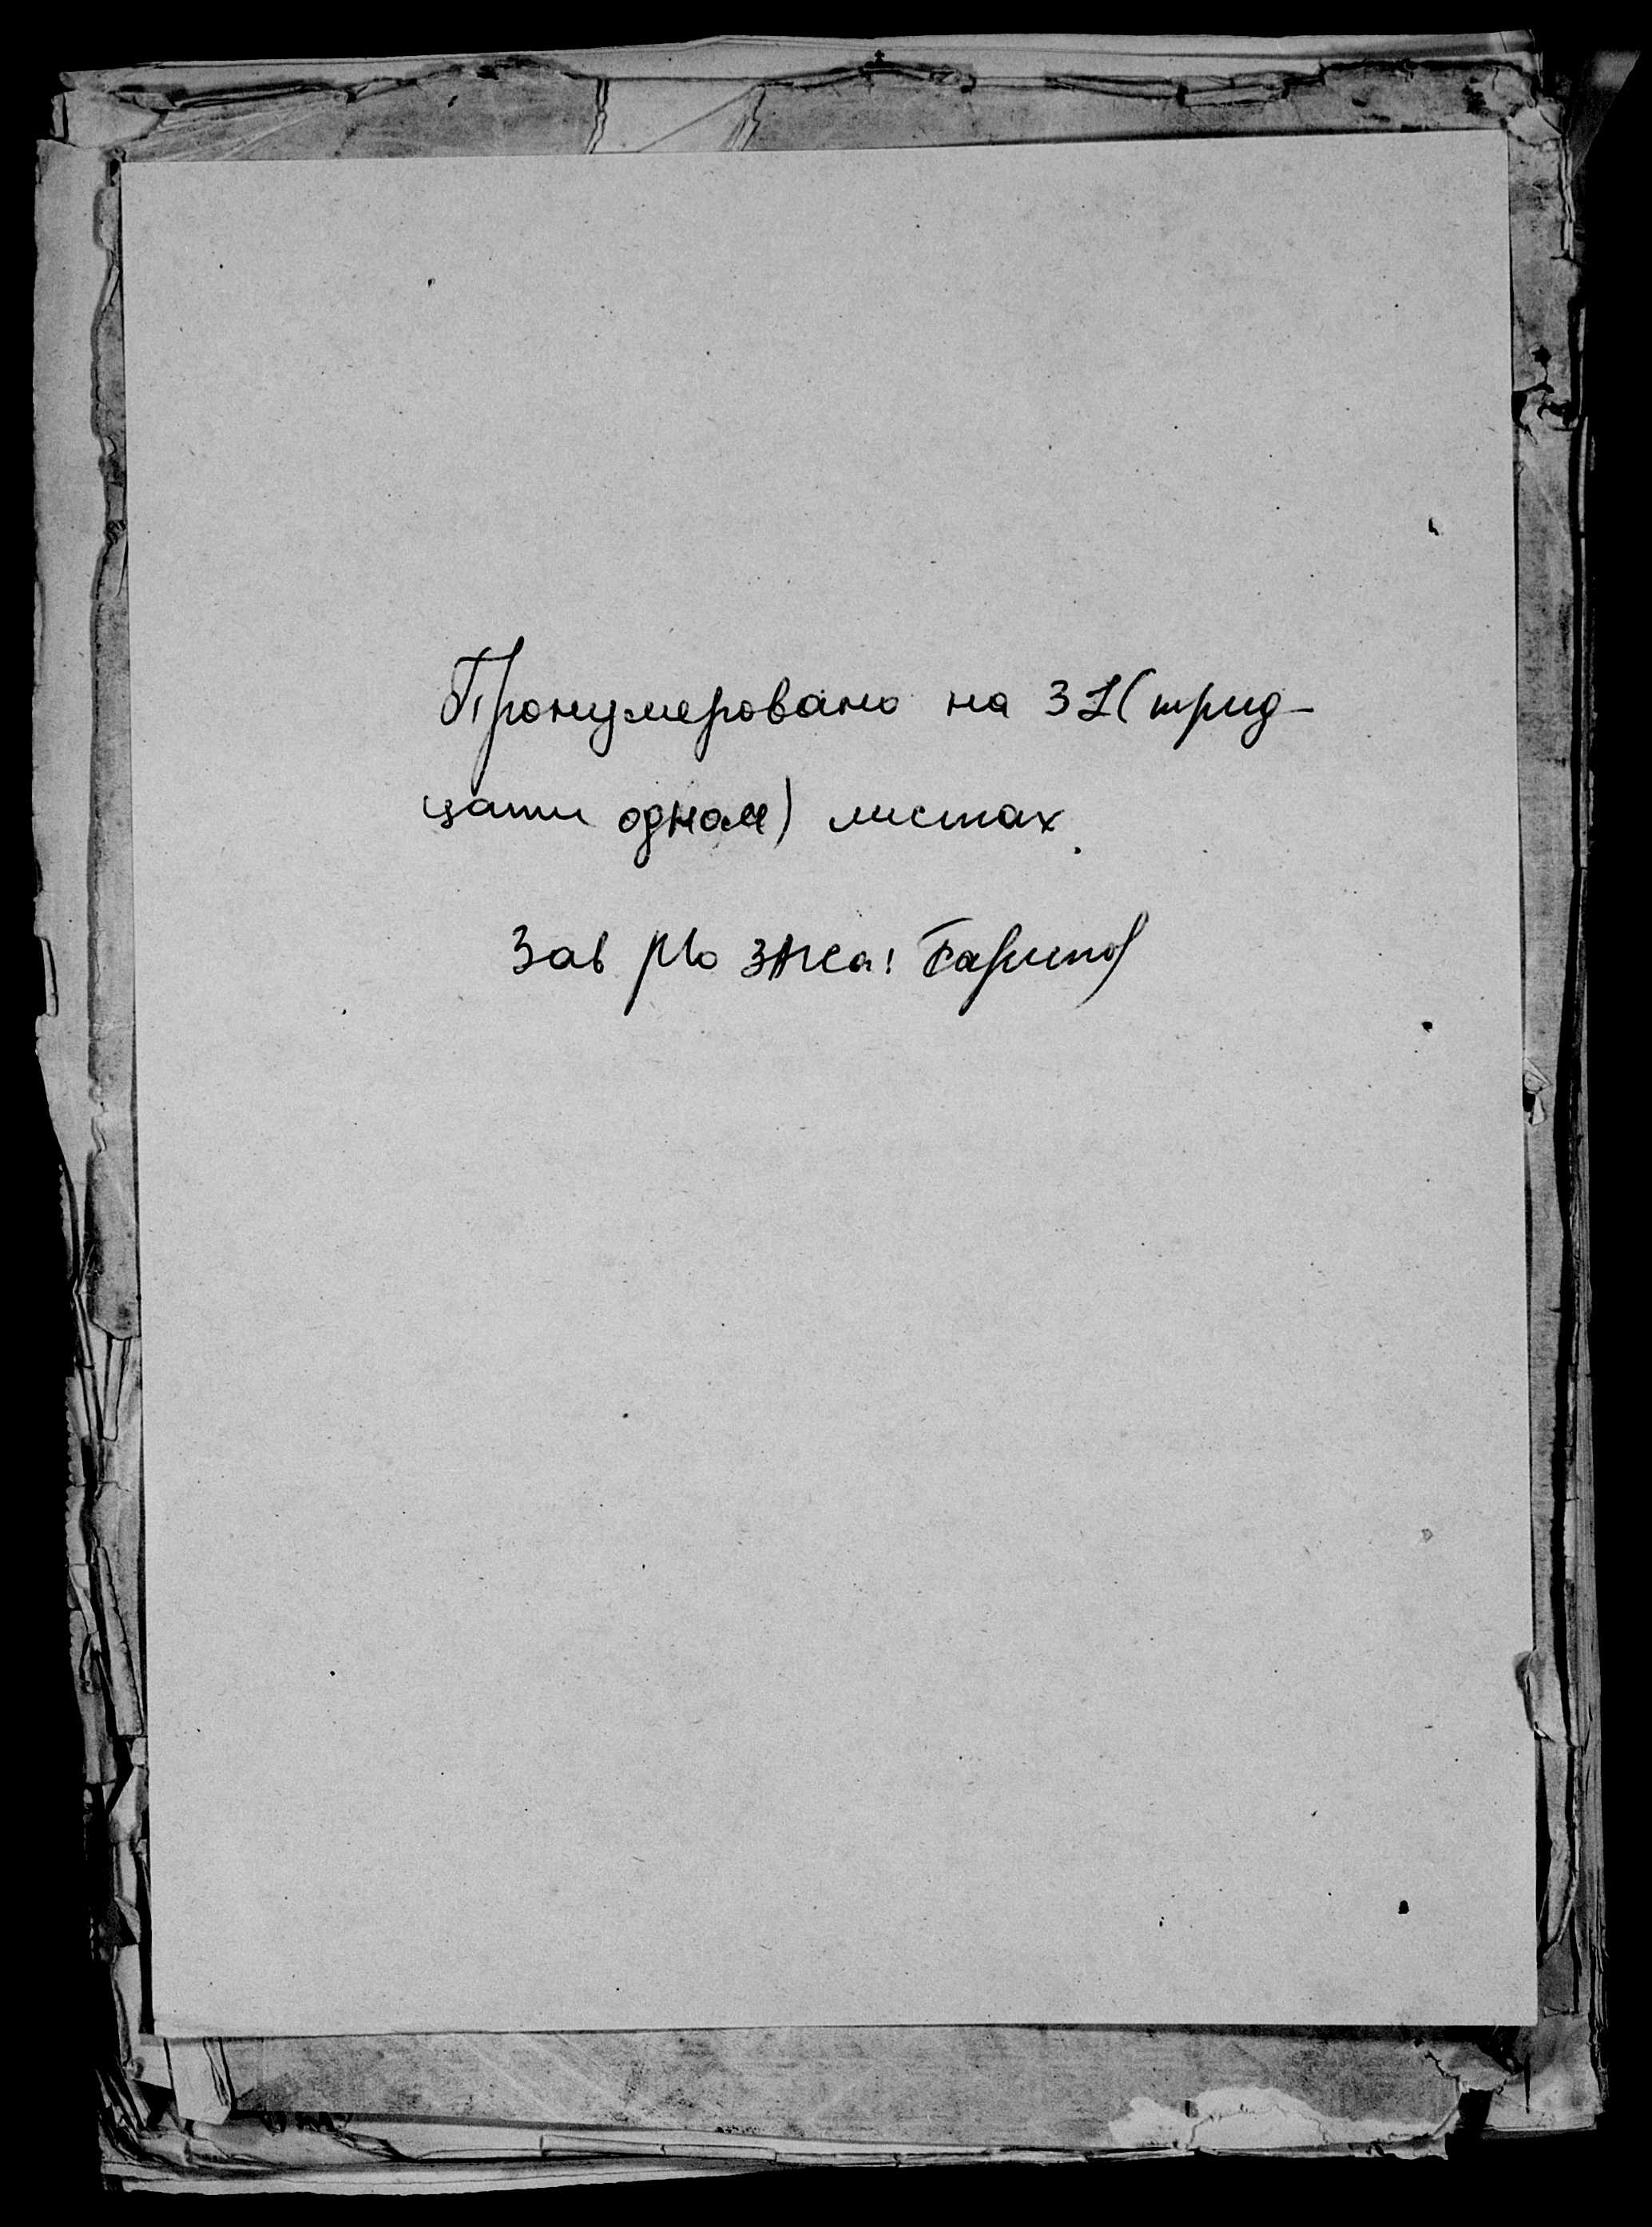 Пронумеровано на 31 (трид-
цати одном) листах.
Зав р/бо ЗАГСа: Гарипов